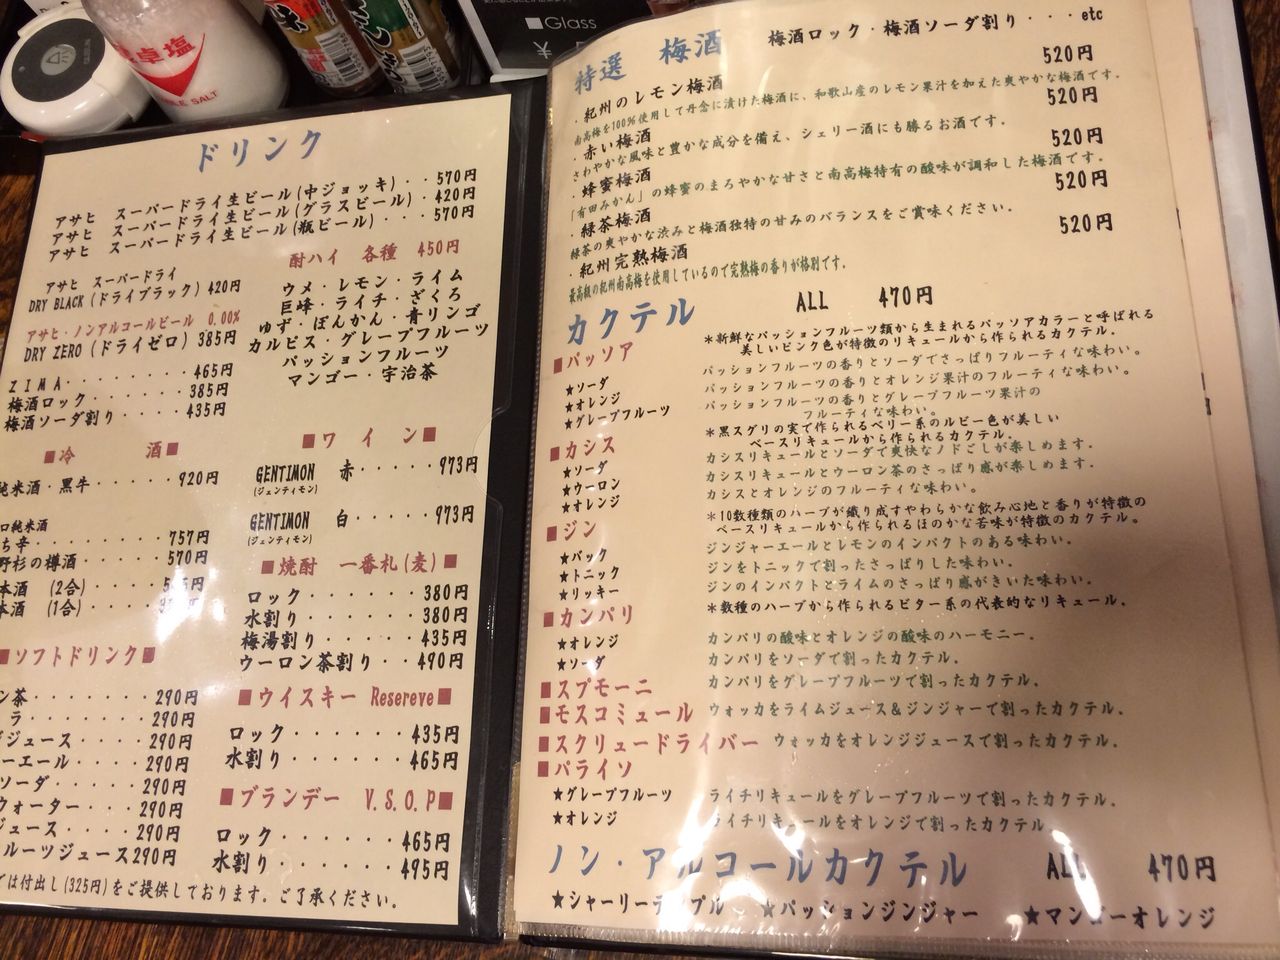 卓塩
TABLE SALT
■Glass
ドリンク
アサヒ スーパードライ生ビール(中ジョッキ)・・570円
アサヒ スーパードライ生ビール(グラスビール)・420円
アサヒ スーパードライ生ビール(瓶ビール)・・・・570円
アサヒ スーパードライ
DRY BLACK(ドライブラック)420円
アサヒ・ノンアルコールビール 0.00%
DRY ZERO(ドライゼロ)385円
ZIMA・・・・・・・・465円
梅酒ロック・・・・・・385円
梅酒ソーダ割り・・・・435円
■冷 酒■
純米酒・黒牛・・・・・920円
口純米酒
ち辛・・・・・・・757円
野杉の樽酒・・・・570円
本酒 (2合)・・・・
本酒 (1合)・・・・
■ソフトドリンク■
ン茶・・・・・・・290円
ラ・・・・・・・290円
ジュース・・・・・290円
ーエール・・・・290円
ソーダ・・・・・290円
ウォーター・・・290円
ジュース・・・・290円
ルーツジュース290円
では付出し(325円)をご提供しております。ご了承ください。
酎ハイ 各種 450円
ウメ・レモン・ライム
巨峰・ライチ・ざくろ
ゆず・ぽんかん・青リンゴ
カルピス・グレープフルーツ
パッションフルーツ
マンゴー・宇治茶
■ワ イ ン■
GENTIMON 赤・・・・・973円
(ジェンティモン)
GENTIMON 白・・・・・973円
(ジェンティモン)
■焼酎 一番札(麦)■
ロック・・・・・・・380円
水割り・・・・・・・380円
梅湯割り・・・・・・435円
ウーロン茶割り・・・490円
■ウイスキー Resereve■
ロック・・・・・・435円
水割り・・・・・・465円
■ブランデー V.S.O.P■
ロック・・・・・・465円
水割り・・・・・・495円
特選 梅酒 梅酒ロック・梅酒ソーダ割り・・・etc
・紀州のレモン梅酒 520円
南高梅を100%使用して丹念に漬けた梅酒に、和歌山産のレモン果汁を加えた爽やかな梅酒です。
・赤い梅酒 520円
さわやかな風味と豊かな成分を備え、シェリー酒にも勝るお酒です。
・蜂蜜梅酒 520円
「有田みかん」の蜂蜜のまろやかな甘さと南高梅特有の酸味が調和した梅酒です。
・緑茶梅酒 520円
緑茶の爽やかな渋みと梅酒独特の甘みのバランスをご賞味ください。
・紀州完熟梅酒 520円
最高級の紀州南高梅を使用しているので完熟梅の香りが格別です。
カクテル ALL 470円
■パッソア ＊新鮮なパッションフルーツ類から生まれるパッソアカラーと呼ばれる
美しいピンク色が特徴のリキュールから作られるカクテル。
★ソーダ パッションフルーツの香りとソーダでさっぱりフルーティな味わい。
★オレンジ パッションフルーツの香りとオレンジ果汁のフルーティな味わい。
★グレープフルーツ パッションフルーツの香りとグレープフルーツ果汁の
フルーティな味わい。
■カシス ＊黒スグリの実で作られるベリー系のルビー色が美しい
ベースリキュールから作られるカクテル。
★ソーダ カシスリキュールとソーダで爽快なノドごしが楽しめます。
★ウーロン カシスリキュールとウーロン茶のさっぱり感が楽しめます。
★オレンジ カシスとオレンジのフルーティな味わい。
■ジン ＊10数種類のハーブが織り成すやわらかな飲み心地と香りが特徴の
ベースリキュールから作られるほのかな苦味が特徴のカクテル。
★バック ジンジャーエールとレモンのインパクトのある味わい。
★トニック ジンをトニックで割ったさっぱりした味わい。
★リッキー ジンのインパクトとライムのさっぱり感がきいた味わい。
■カンパリ ＊数種のハーブから作られるビター系の代表的なリキュール。
★オレンジ カンパリの酸味とオレンジの酸味のハーモニー。
★ソーダ カンパリをソーダで割ったカクテル。
■スプモーニ カンパリをグレープフルーツで割ったカクテル。
■モスコミュール ウォッカをライムジュース＆ジンジャーで割ったカクテル。
■スクリュードライバー ウォッカをオレンジジュースで割ったカクテル。
■パライソ
★グレープフルーツ ライチリキュールをグレープフルーツで割ったカクテル。
★オレンジ ライチリキュールをオレンジで割ったカクテル。
ノン・アルコールカクテル ALL 470円
★シャーリーテンプル ★パッションジンジャー ★マンゴーオレンジ